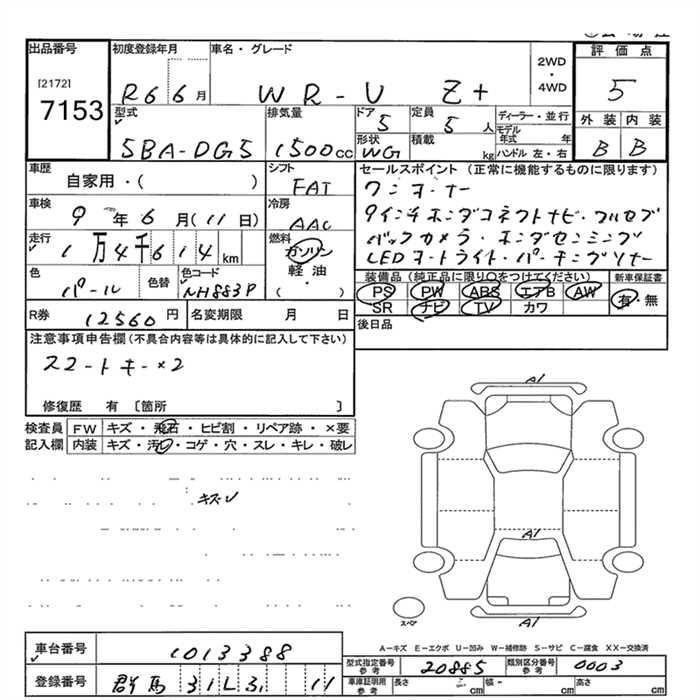 出品番号 初度登録年月 車名・グレード 2WD・4WD 評価点
[2172]
7153 R6 6月 WR-V Z+ 5
型式 排気量 ドア 定員 ディーラー・並行 外装 内装
5BA-DG5 1500cc 5 5人 モデル年式 年 B B
形状 積載 ハンドル 左・右
WG kg
車歴 シフト セールスポイント (正常に機能するものに限ります)
自家用・( ) FAT ワンオーナー
車検 冷房 9インチホンダコネクトナビ・フルセグ
9年6月(11日) AAC バックカメラ・ホンダセンシング
走行 燃料 LEDオートライト・パーキングソナー
1万4千614km ガソリン
軽油
( )
色 色替 色コード 装備品 (純正品に限り○をつけてください) 新車保証書
パール NH883P PS PW ABS エアB AW 有・無
SR ナビ TV カワ
R券 12560円 名変期限 月 日 後日品
注意事項申告欄(不具合内容等は具体的に記入して下さい)
スマートキー×2
修復歴 有 〔箇所 〕
検査員 FW キズ・飛石・ヒビ割・リペア跡・×要
記入欄 内装 キズ・汚レ・コゲ・穴・スレ・キレ・破レ
キズU
A1
A1
A1
スペア
A-キズ E-エクボ U-凹み W-補修跡 S-サビ C-腐食 XX-交換済
車台番号 1013388
型式指定番号 参考 20885 類別区分番号 参考 0003
登録番号 群馬 31 11
車庫証明用 参考 長さ cm 幅 cm 高さ cm